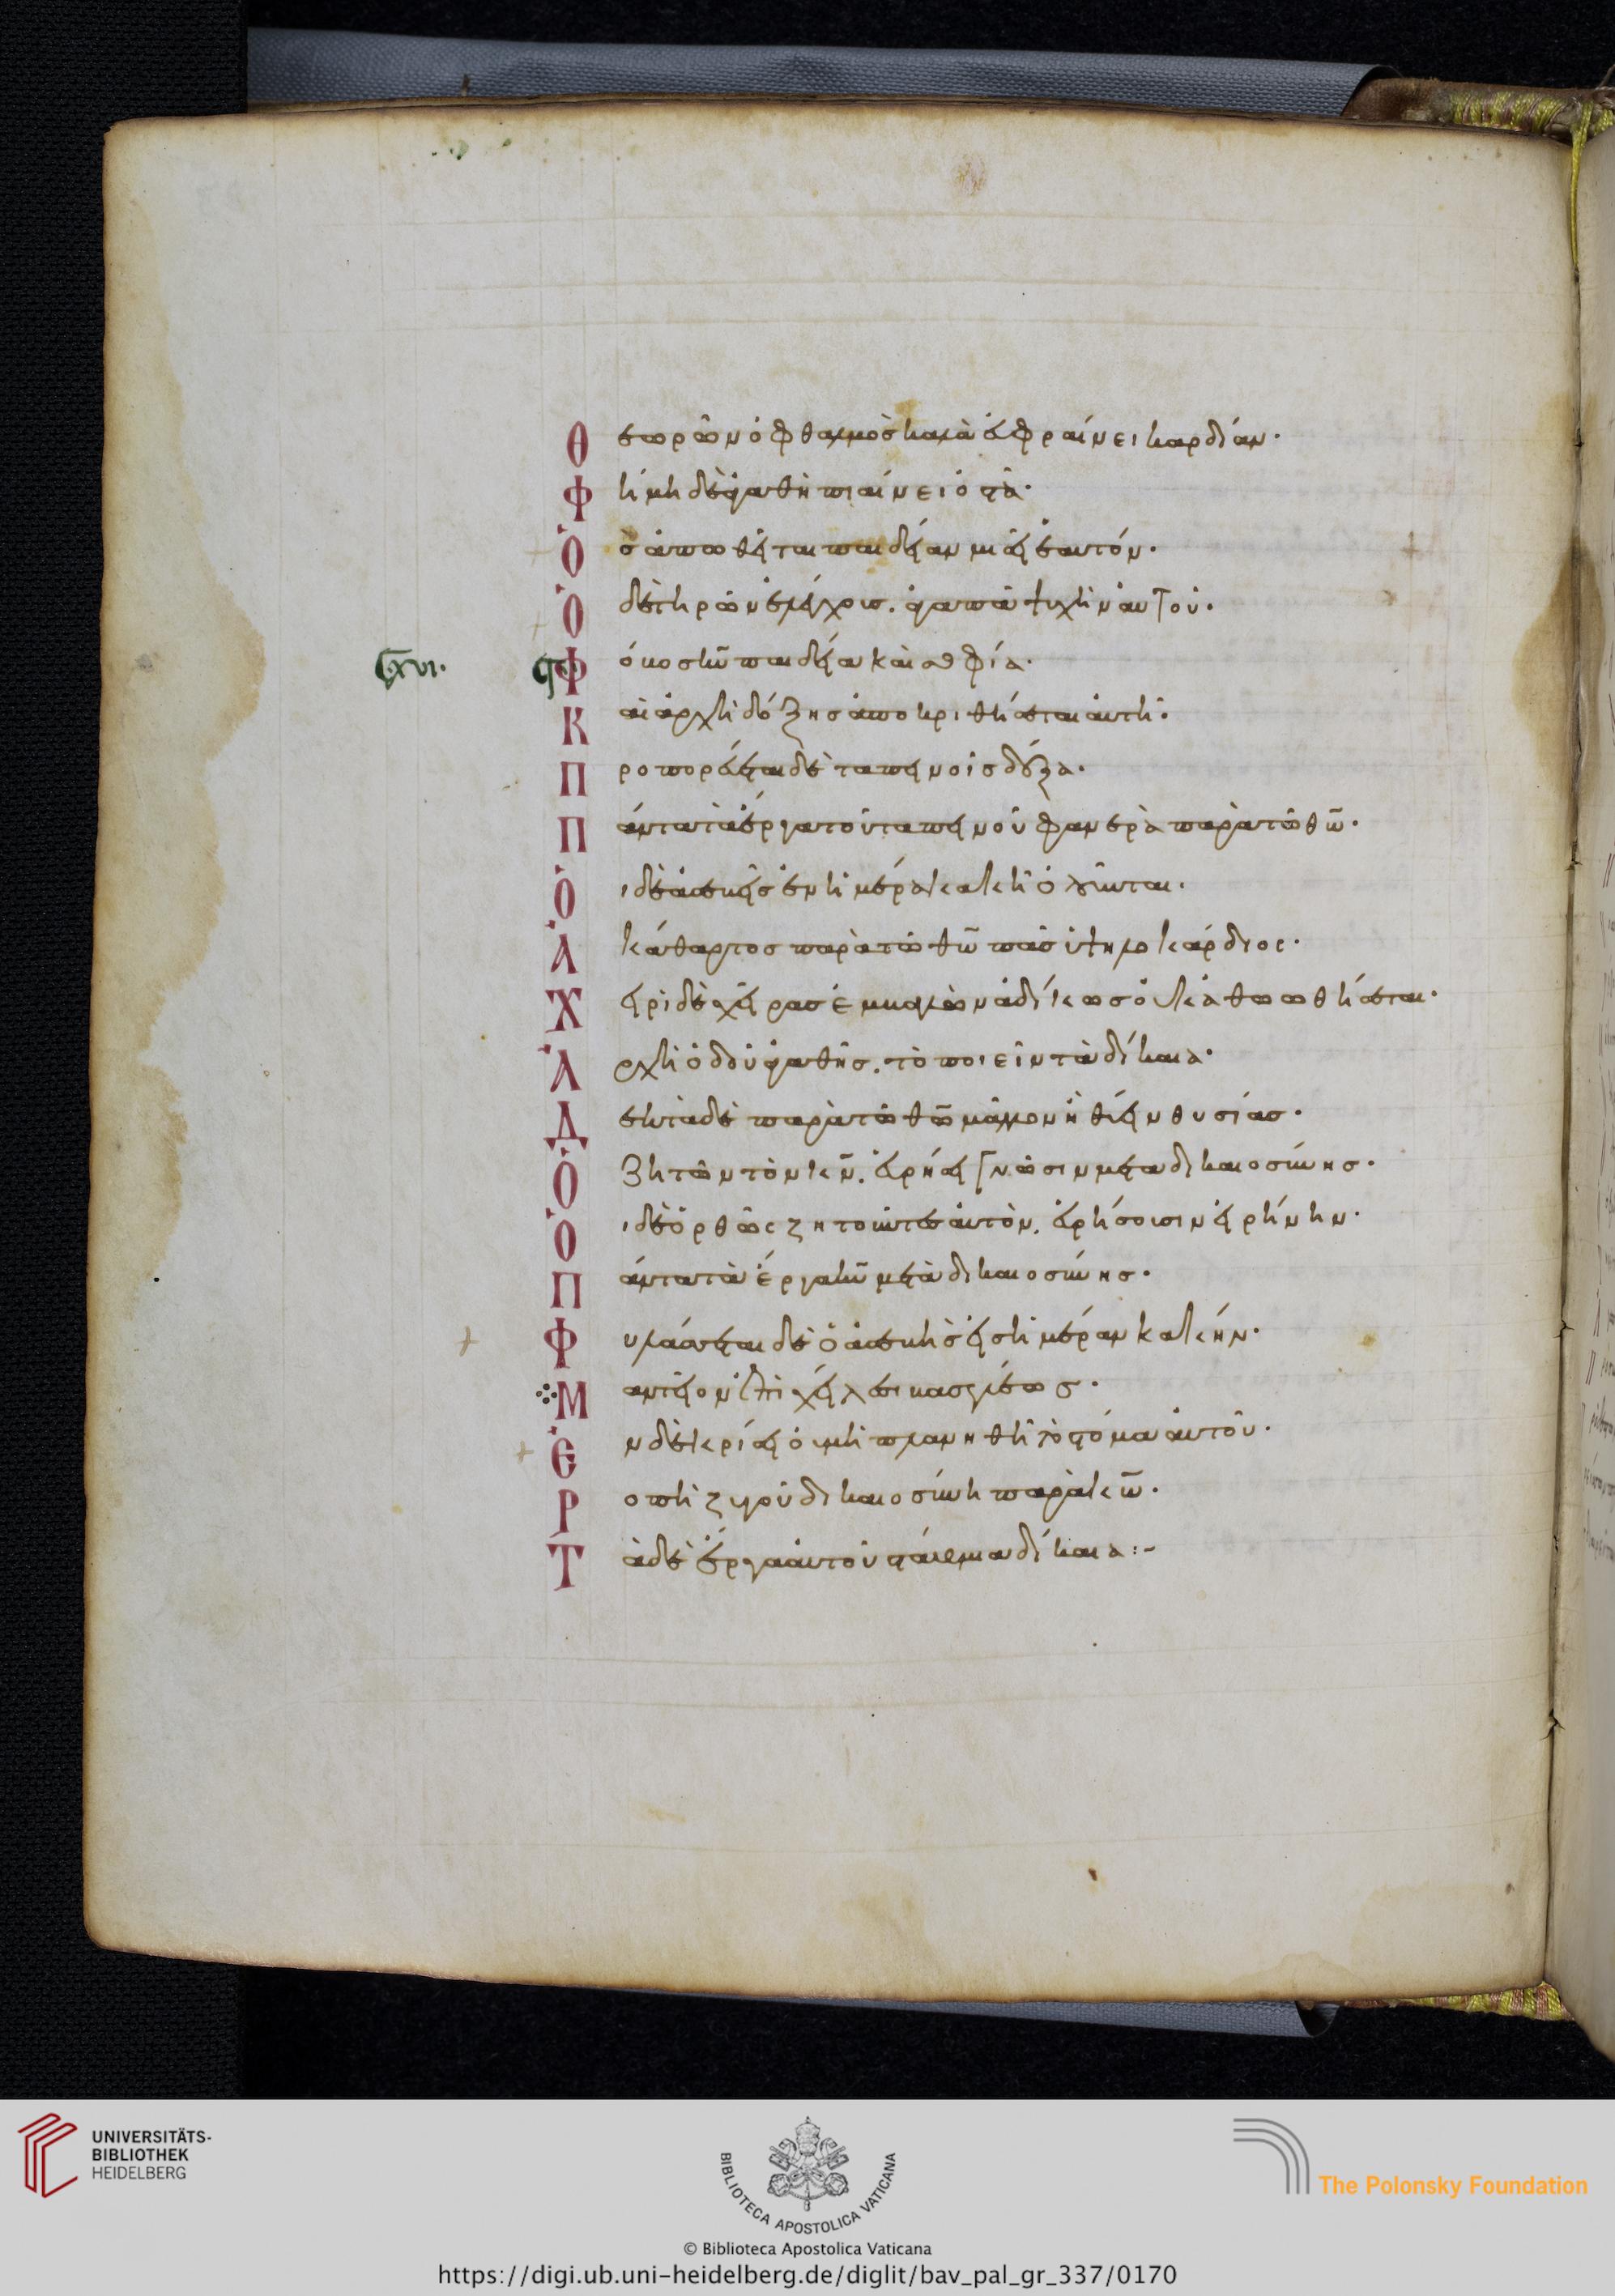 Θεωρῶν ὀφθαλμὸς καλὰ εὐφραίνει καρδίαν·
Φήμη δὲ ἀγαθὴ πιαίνει ὀστᾶ·
Ὃς ἀπωθεῖται παιδείαν μισεῖ ἑαυτόν·
Ὁ δὲ τηρῶν ἐλέγχους. ἀγαπᾶ ψυχὴν αὐτοῦ·
Φόβος κυ̅ παιδεία καὶ σοφία·
Καὶ ἀρχὴ δόξης ἀποκριθήσεται αὐτῆ·
Προπορεύεται δὲ ταπεινοῖς δόξα·
Πάντα τὰ ἔργα τοῦ ταπεινοῦ φανερὰ παρὰ τῶ θω̅·
Οἱ δὲ ἀσεβεῖς ἐν ἡμέρα κακῆ ὀλοῦνται·
Ἀκάθαρτος παρὰ τῶ θω̅ πᾶς ὑψηλοκάρδιος·
Χειρὶ δὲ χεῖρας ἐμβαλὼν ἀδίκως οὐκ ἀθωωθήσεται·
Ἀρχὴ ὁδοῦ ἀγαθῆς. τὸ ποιεῖν τὰ δίκαια·
Δεκτὰ δὲ παρὰ τῶ θω̅ μᾶλλον ἢ θύειν θυσίας·
Ὁ ζητῶν τὸν κν̅. εὑρήσει γνῶσιν μετὰ δικαιοσύνης·
Οἱ δὲ ὀρθῶς ζητοῦντες αὐτὸν. εὑρήσουσιν εἰρήνην·
Πάντα τὰ ἔργα κυ̅ μετὰ δικαιοσύνης·
Φυλάσσεται δὲ ὁ ἀσεβὴς εἰς ἡμέραν κακήν·
Μαντεῖον ἐπὶ χείλεσι βασιλέως·
Ἐν δὲ κρίσει οὐ μὴ πλανηθῆ τὸ στόμα αὐτοῦ·
Ῥοπὴ ζυγοῦ δικαιοσύνη παρὰ κω̅·
Τὰ δὲ ἔργα αὐτοῦ στάθμια δίκαια:-
UNIVERSITÄTS-
BIBLIOTHEK
HEIDELBERG
BIBLIOTECA APOSTOLICA VATICANA
The Polonsky Foundation
© Biblioteca Apostolica Vaticana
https://digi.ub.uni-heidelberg.de/diglit/bav_pal_gr_337/0170